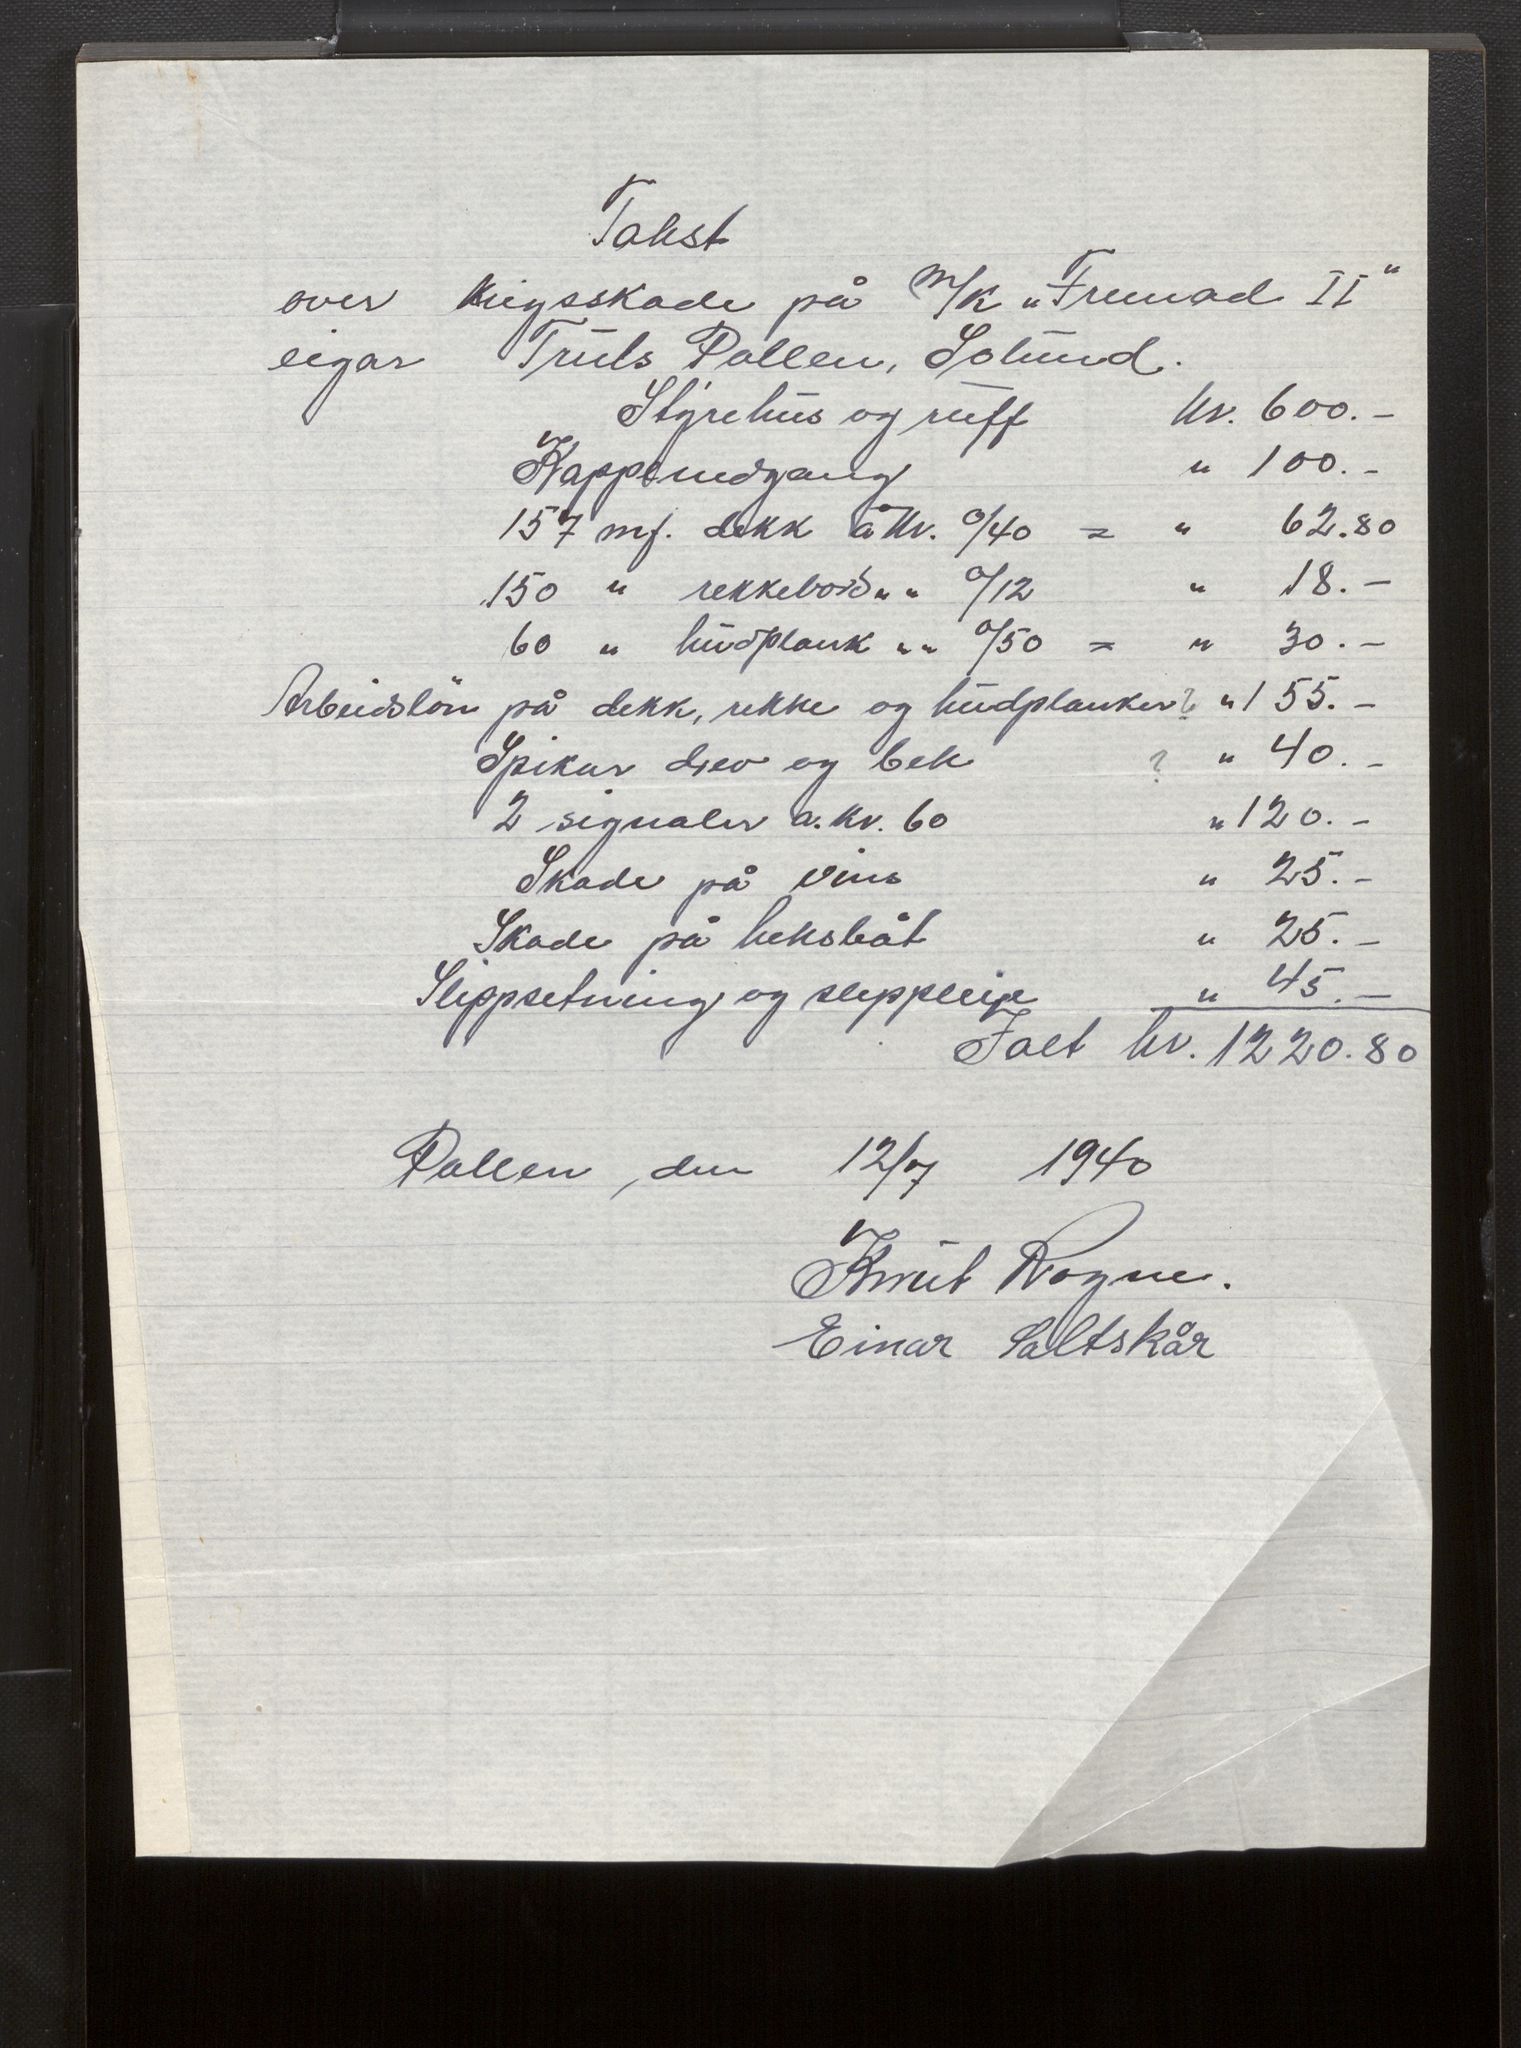 Takst
over krigsskade på m/k „Fremad II"
eigar Truls Pollen, Solund.
Styrehus og ruff kr. 600.-
Kappenedgang " 100.-
157 mf. dekk à kr. 0/40 = " 62.80
150 " rekkebord " " 0/12 " 18.-
60 " hudplank " " 0/50 = " 30.-
Arbeidslön på dekk, rekke og hudplanker ? " 155.-
Spikar drev og bek ? " 40.-
2 signaler a. kr. 60 " 120.-
Skade på vins " 25.-
Skade på heksbåt " 25.-
Slippsetning og slippleige " 45.-
Ialt kr. 1220.80
Pollen, den 12/7 1940
Knut Rogne.
Einar Saltskår